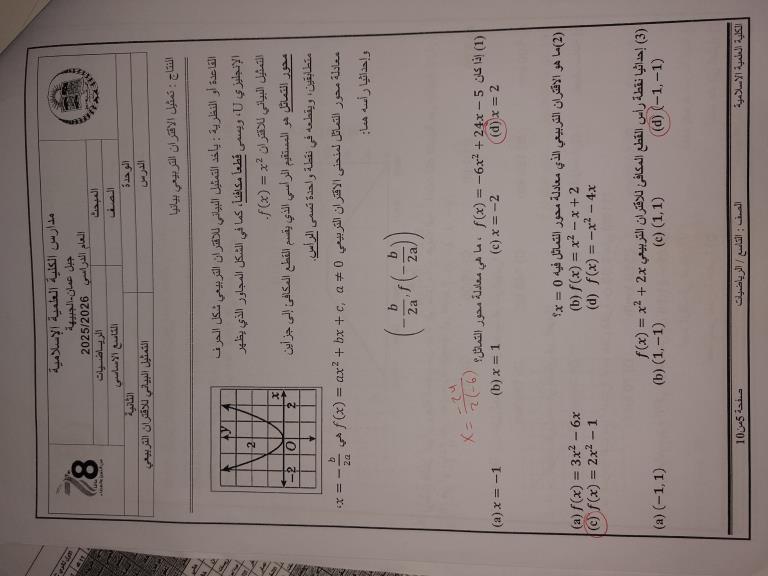 مدارس الكلية العلمية الإسلامية
جبل عمان-الجبيهة
العام الدراسي 2025/2026
المبحث الرياضيات
الصف التاسع الاساسي
الوحدة الثانية
الدرس التمثيل البياني للاقتران التربيعي
78
النتاج : تمثيل الاقتران التربيعي بيانيا
القاعدة أو النظرية : يأخذ التمثيل البياني للاقتران التربيعي شكل الحرف
الإنجليزي U، ويسمى قطعا مكافئا، كما في الشكل المجاور الذي يظهر
التمثيل البياني للاقتران f(x) = x²
محور التماثل هو المستقيم الرأسي الذي يقسم القطع المكافئ إلى جزأين
متطابقين، ويقطعه في نقطة واحدة تسمى الرأس.
y
2
-2 O 2 x
معادلة محور التماثل لمنحنى الاقتران التربيعي f(x) = ax² + bx + c, a ≠ 0 هي x = -b/2a،
وإحداثيا رأسه هما:
(-b/2a, f(-b/2a))
(1) إذا كان f(x) = -6x² + 24x - 5 ، ما هي معادلة محور التماثل؟
x = -24/2(-6)
(a) x = -1 (b) x = 1 (c) x = -2 (d) x = 2
(2) ما هو الاقتران التربيعي الذي معادلة محور التماثل فيه x = 0؟
(a) f(x) = 3x² - 6x (b) f(x) = x² - x + 2
(c) f(x) = 2x² - 1 (d) f(x) = -x² - 4x
(3) إحداثيا نقطة رأس القطع المكافئ للاقتران التربيعي f(x) = x² + 2x
(a) (-1, 1) (b) (1, -1) (c) (1, 1) (d) (-1, -1)
الكلية العلمية الاسلامية الصف : التاسع / الرياضيات صفحة 5 من 10